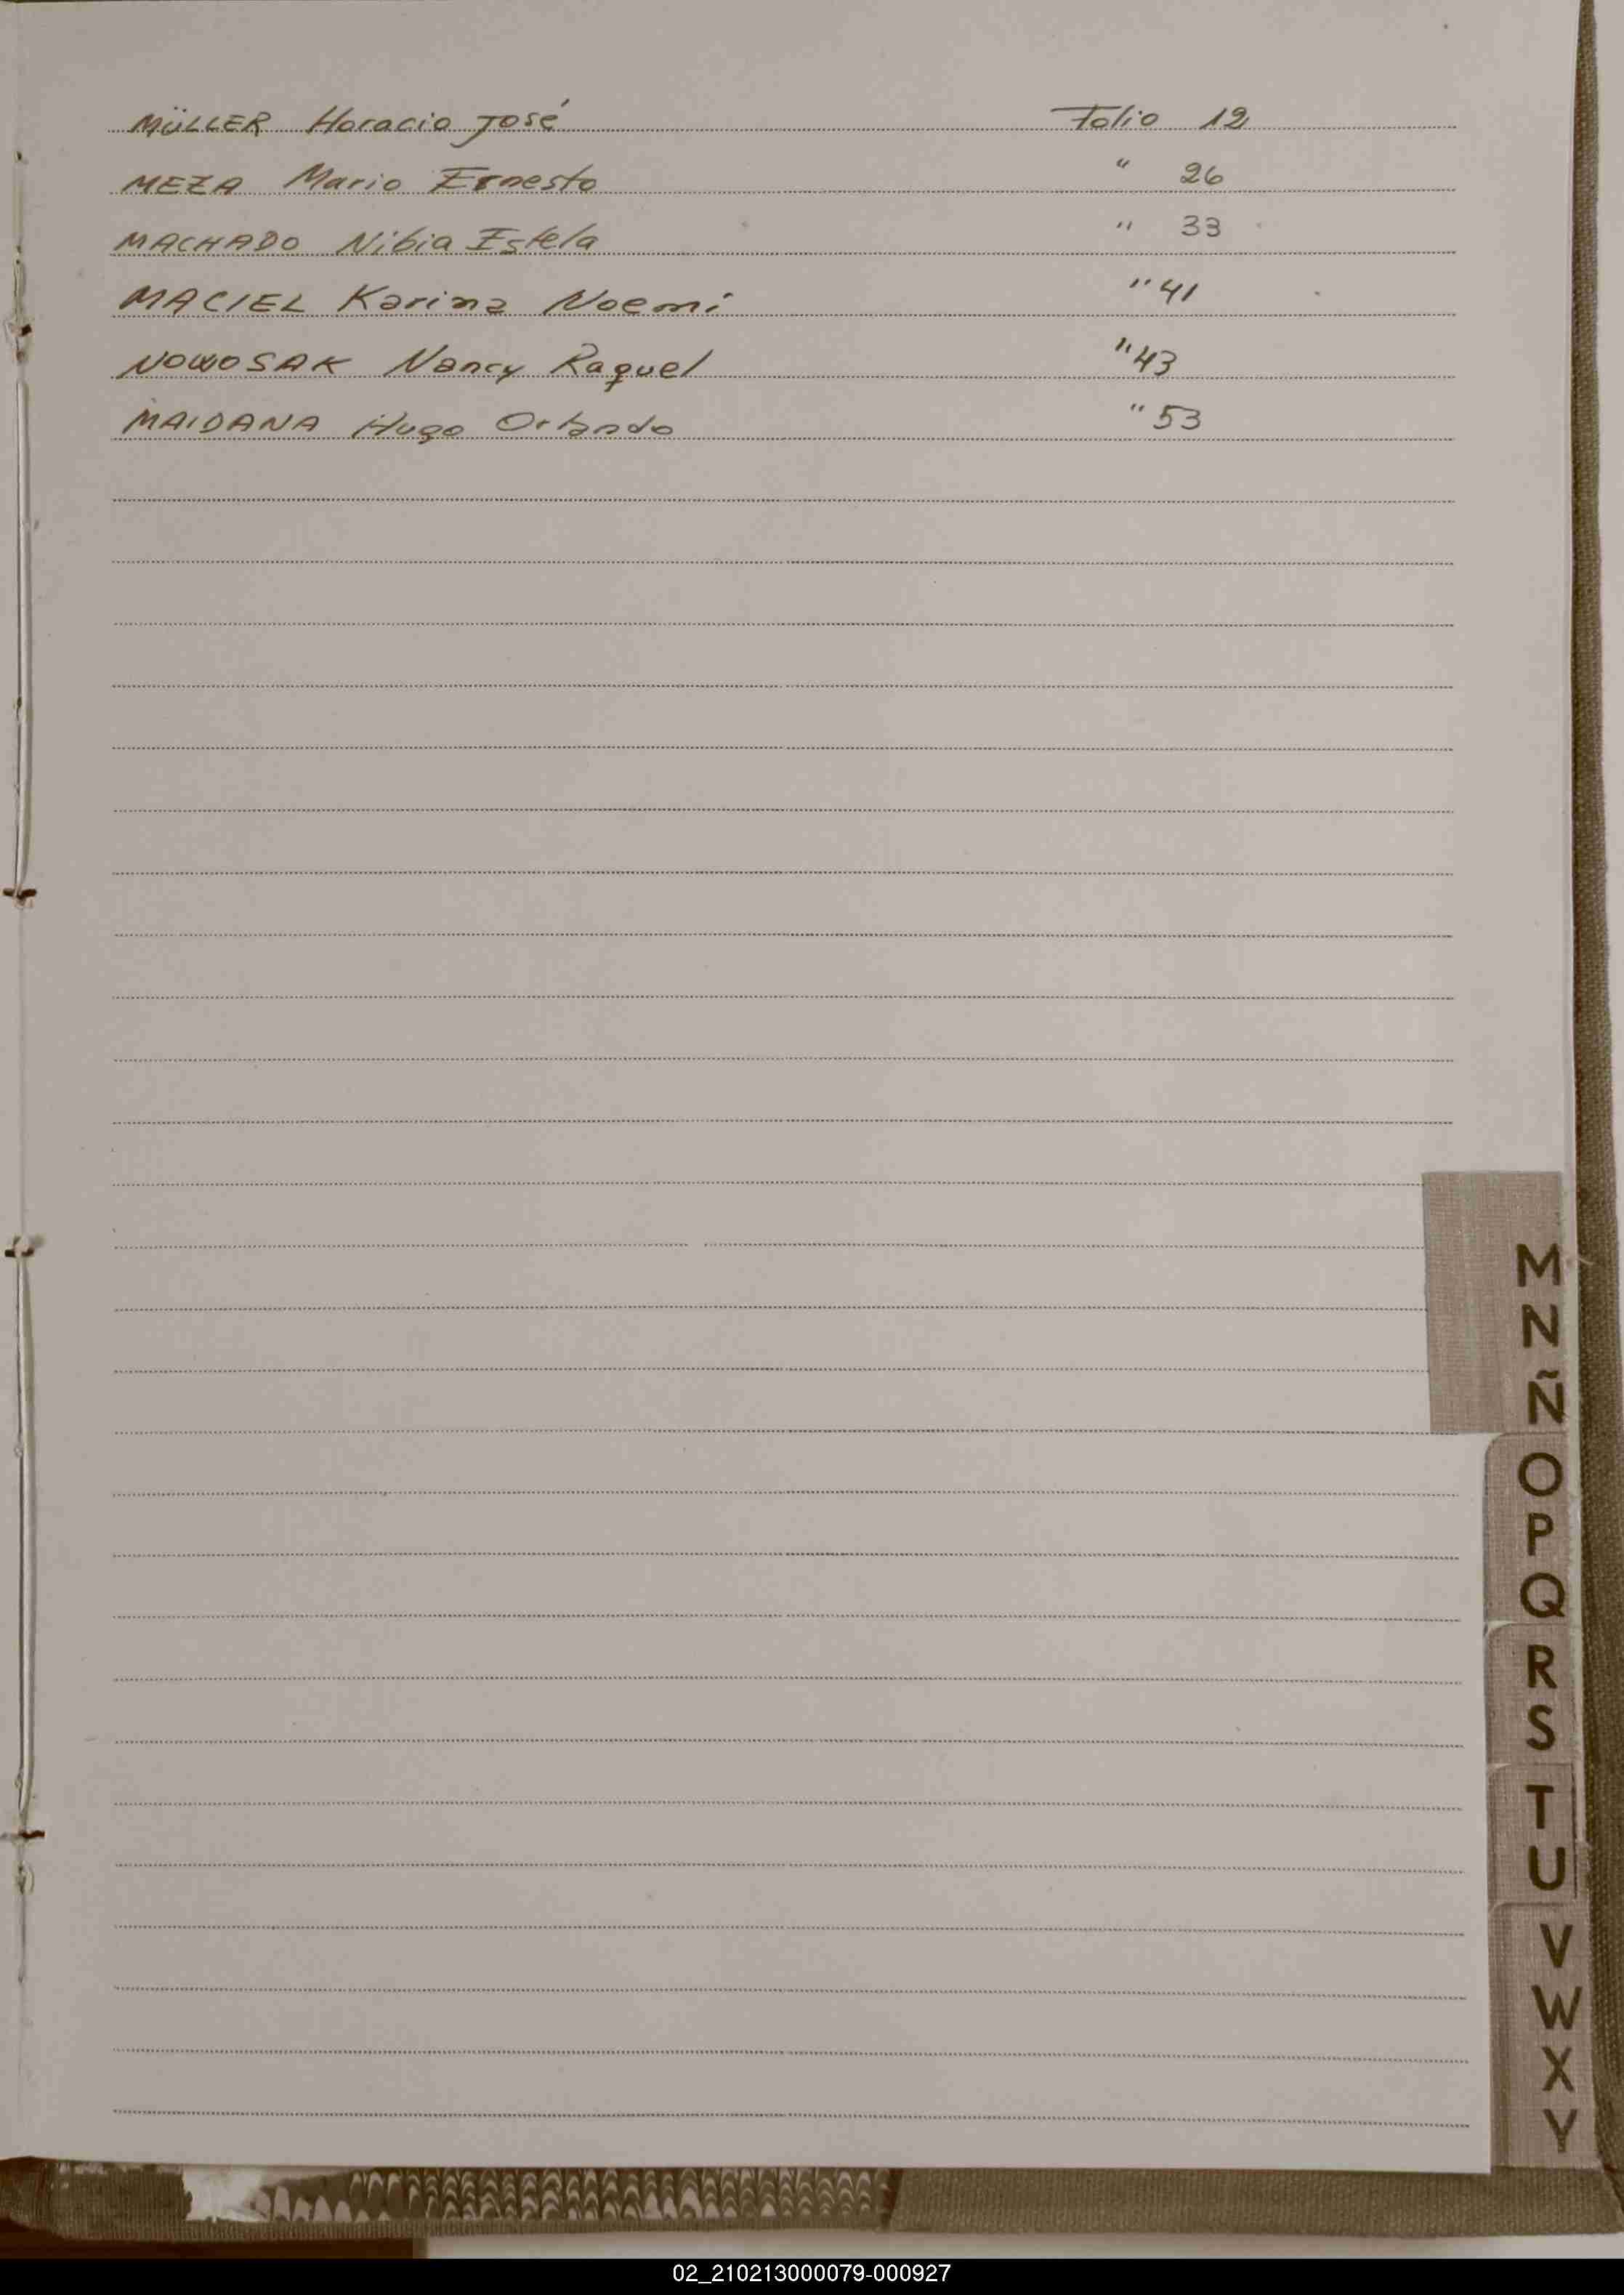 MÜLLER Horacio José Folio 12
MEZA Mario Ernesto " 26
MACHADO Nibia Estela " 33
MACIEL Karina Noemi " 41
NOWOSAK Nancy Raquel " 43
MAIDANA Hugo Orlando " 53
M
N
Ñ
O
P
Q
R
S
T
U
V
W
X
Y
02_210213000079-000927